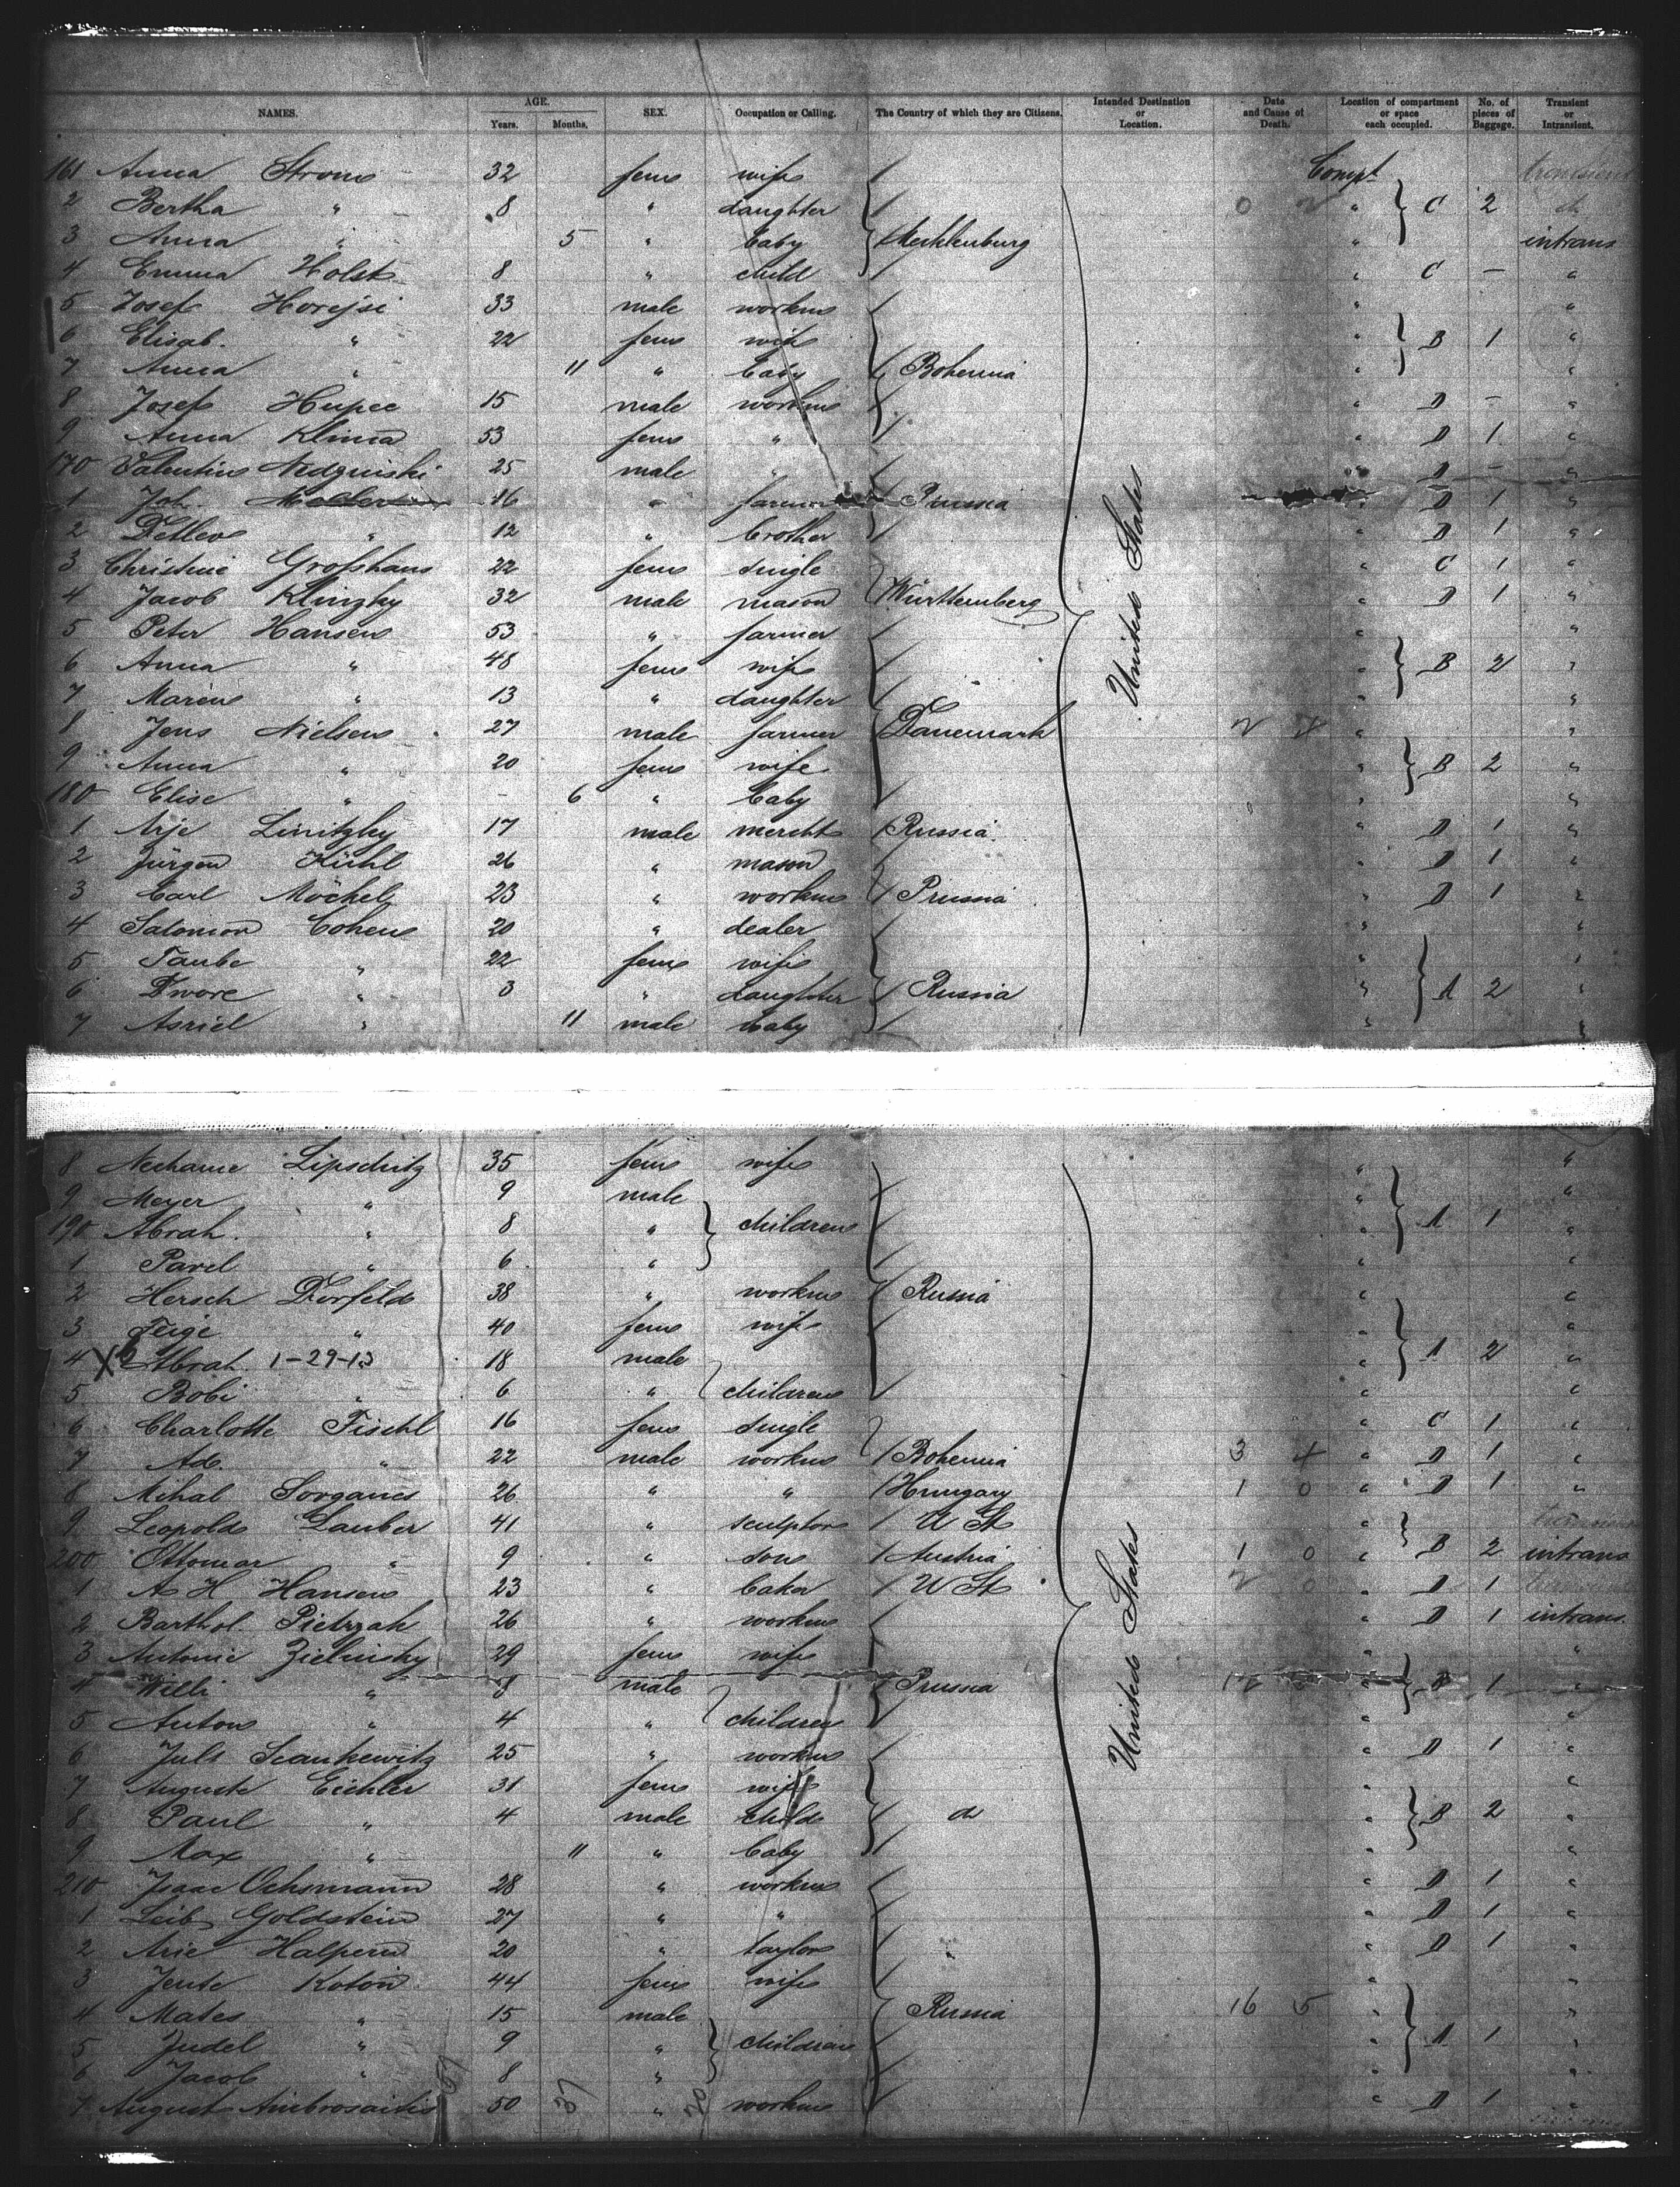 NAMES. AGE. Years. Months. SEX. Occupation or Calling. The Country of which they are Citizens. Intended Destination or Location. Date and Cause of Death. Location of compartment or space each occupied. No. of pieces of Baggage. Transient or Intransient.
161 Anna 32 fem wife Compt
2 Bertha " 8 " daughter " C 2
3 Anna " 5 " baby Mecklenburg " intrans
4 Emma Holst 8 " child " C — "
5 Josef Horejsi 33 male workm " "
6 Elisab. " 22 fem wife " B 1 "
7 Anna " 11 " baby Bohemia " "
8 Josef Hupec 15 male workm " D — "
9 Anna Klima 53 fem " " D 1 "
170 Valentin 25 male " " D — "
1 Joh. 16 " farmer Prussia " D 1 "
2 Detlev " 12 " brother " D 1 "
3 Christine Grosshans 22 fem single " C 1 "
4 Jacob 32 male mason Württemberg " D 1 "
5 Peter Hansen 53 " farmer " "
6 Anna " 48 fem wife " B 2 "
7 Maren " 13 " daughter " "
8 Jens Nielsen 27 male farmer Danemark " "
9 Anna " 20 fem wife " B 2 "
180 Elise " — 6 " baby " "
1 Arje Linitzky 17 male mercht Russia " D 1 "
2 Jürgen Kühl 26 " mason " D 1 "
3 Carl Möckel 23 " workm Prussia " D 1 "
4 Salomon Cohen 20 " dealer " "
5 Taube " 22 fem wife " "
6 Dwore " 3 " daughter Russia " A 2 "
7 Asriel " 11 male baby " "
United States
8 Nechame Lipschitz 35 fem wife " "
9 Meyer " 9 male " "
190 Abrah. " 8 " children A 1 "
1 Pavel " 6 " " "
2 Hersch Dorfeld 38 " workm Russia " "
3 Feige " 40 fem wife " "
4 X Abrah. 1-29-13 18 male " A 2 "
5 Bobi " 6 " children " "
6 Charlotte Fischl 16 fem single " C 1 "
7 Ad. " 22 male workm Bohemia 3 4 " D 1 "
8 Mihal 26 " " Hungary 1 0 " D 1 "
9 Leopold Lauber 41 " sculptor U St "
200 Ottomar " 9 " son Austria 1 0 " B 2 intrans
1 A H Hansen 23 " baker U St 2 0 " D 1
2 Barthol. Pietrzak 26 " workm " D 1 intrans.
3 Antonie Zielinsky 29 fem wife " "
4 Willi " 8 male Prussia " B 1 "
5 Anton " 4 " children " "
6 Juls 25 " workm " D 1 "
7 Auguste Eichler 31 fem wife " "
8 Paul " 4 male child do " B 2 "
9 Max " 11 " baby " "
210 Isaac Ochsmann 28 " workm " D 1 "
1 Leib Goldstein 27 " " " D 1 "
2 Arie Halpern 20 " taylor " D 1 "
3 Jente Koton 44 fem wife " "
4 Mates " 15 male Russia 16 5 " "
5 Judel " 9 " children " A 1 "
6 Jacob " 8 " " "
7 August Ambrosaitis 50 " workm " D 1 "
United States